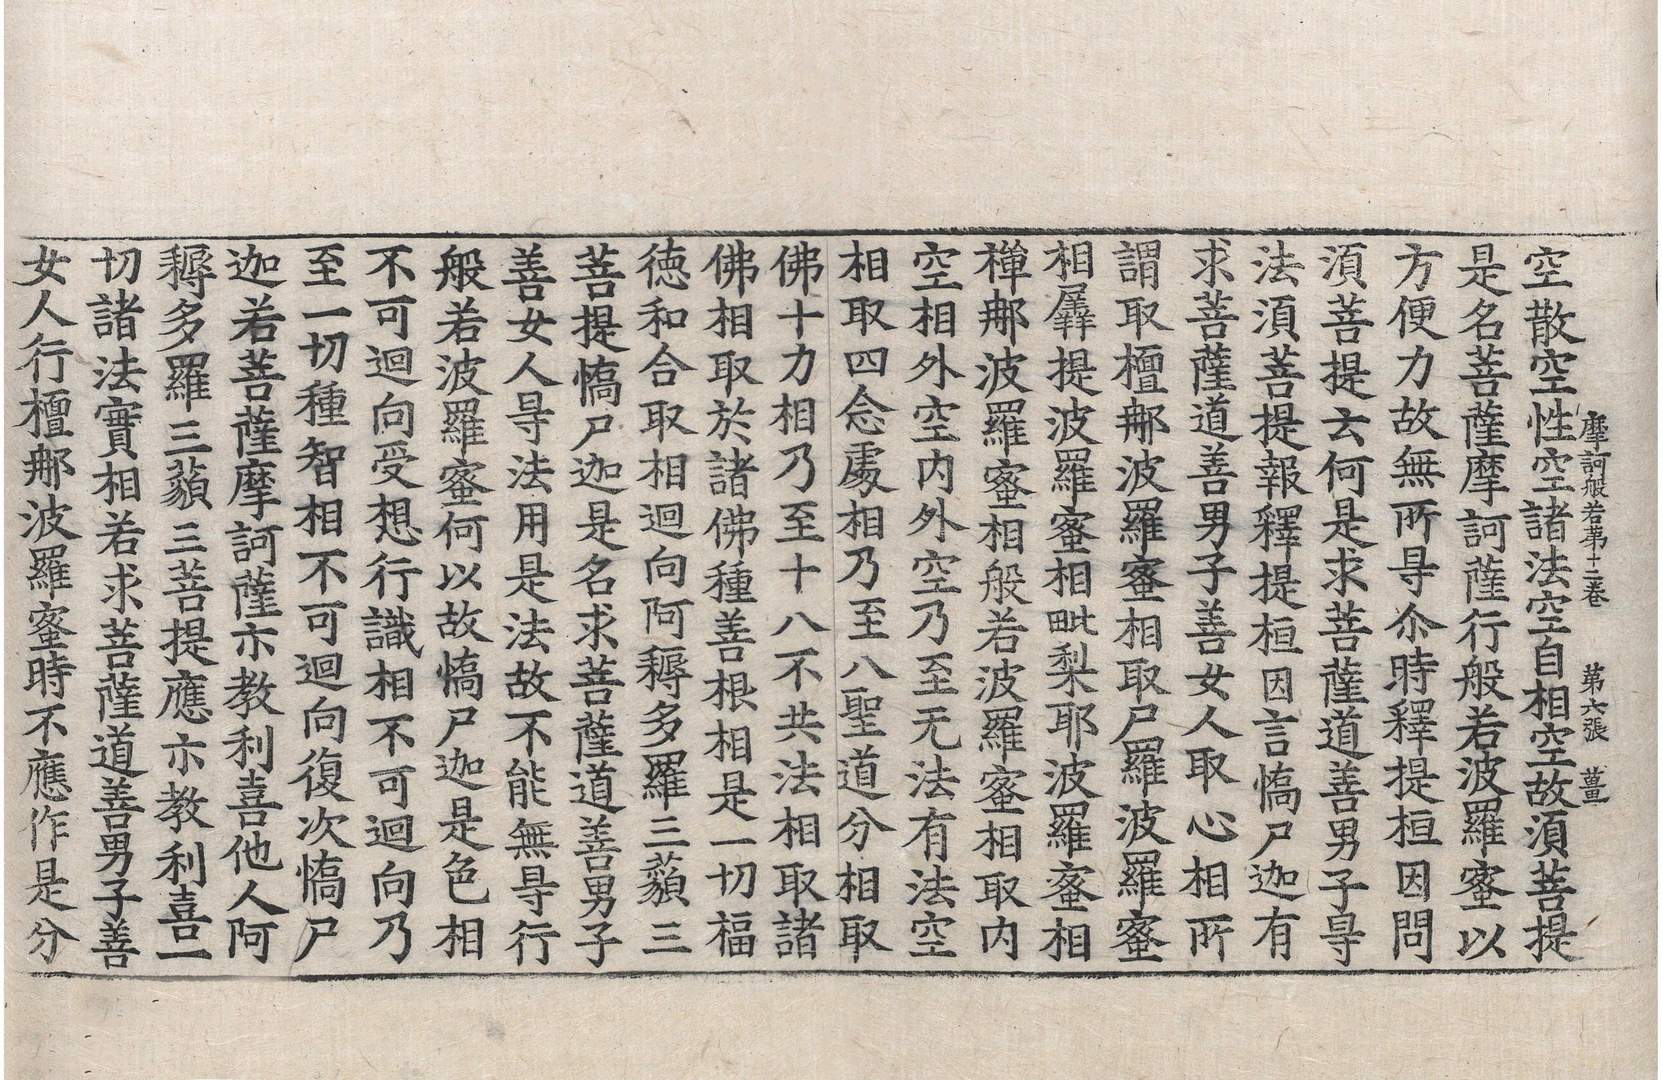 摩訶般若苐十二卷 第六張 薑
空散空性空諸法空自相空故湏菩提
是名菩薩摩訶薩行般若波羅蜜以
方便力故無所㝵尒時釋提桓因問
湏菩提云何是求菩薩道善男子㝵
法湏菩提報釋提桓因言憍尸迦有
求菩薩道善男子善女人取心相所
謂取檀郍波羅蜜相取尸羅波羅蜜
相羼提波羅蜜相毗梨耶波羅蜜相
禪郍波羅蜜相般若波羅蜜相取内
空相外空内外空乃至无法有法空
相取四念處相乃至八聖道分相取
佛十力相乃至十八不共法相取諸
佛相取於諸佛種善根相是一切福
徳和合取相迴向阿耨多羅三藐三
菩提憍尸迦是名求菩薩道善男子
善女人㝵法用是法故不能無㝵行
般若波羅蜜何以故憍尸迦是色相
不可迴向受想行識相不可迴向乃
至一切種智相不可迴向復次憍尸
迦若菩薩摩訶薩亦教利喜他人阿
耨多羅三藐三菩提應亦教利喜一
切諸法實相若求菩薩道善男子善
女人行檀郍波羅蜜時不應作是分